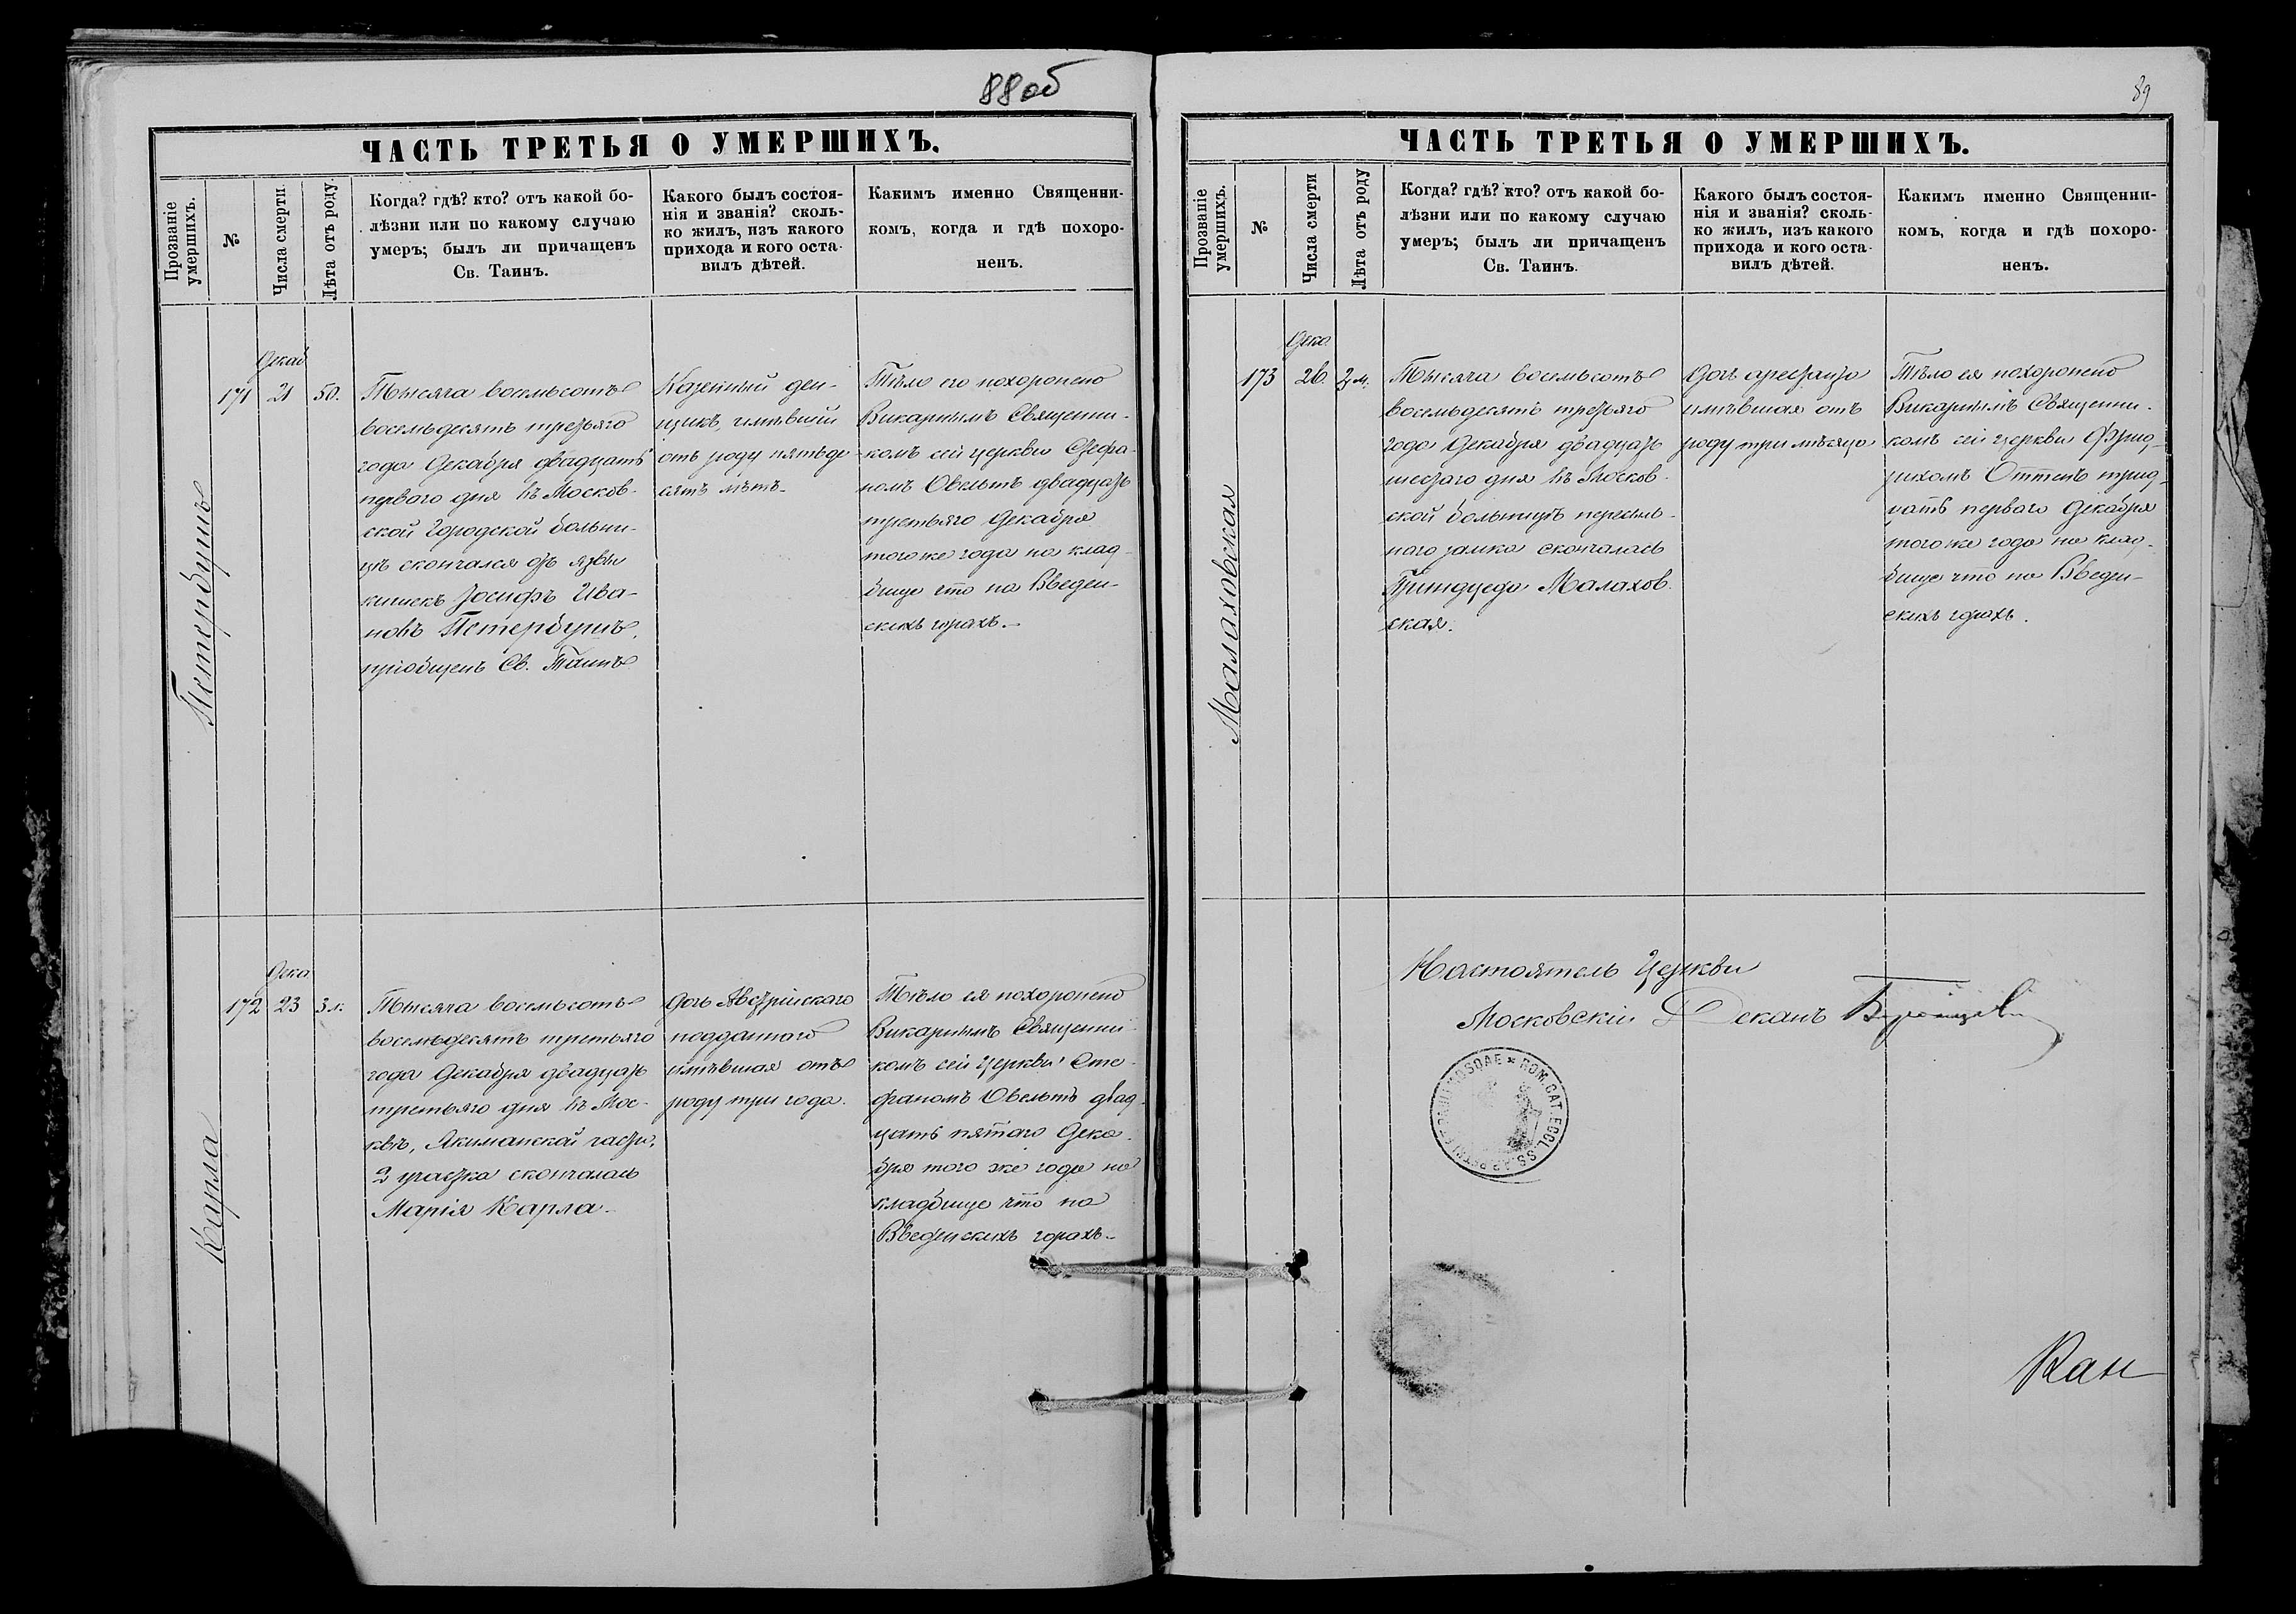 88 об
ЧАСТЬ ТРЕТЬЯ О УМЕРШИХЪ.
Прозваніе умершихъ.
№
Числа смерти.
Лѣта отъ роду.
Когда? гдѣ? кто? отъ какой бо-
лѣзни или по какому случаю
умеръ; былъ ли причащенъ
Св. Таинъ.
Какого былъ состоя-
нія и званія? сколь-
ко жилъ, изъ какого
прихода и кого оста-
вилъ дѣтей.
Какимъ именно Священни-
комъ, когда и гдѣ похоро-
ненъ.
Петербушъ
171
Декаб
21
50.
Тысяча восемьсотъ
восемьдесятъ третьяго
года Декабря двадцать
перваго дня въ Москов-
ской Городской больни-
цѣ скончался отъ язвы
кишекъ Іосифъ Ива-
новъ Петербушъ,
пріобщенъ Св. Таинъ
Казенный ден-
щикъ, имѣвшій
отъ роду пятьде-
сятъ лѣтъ.
Тѣло его похоронено
Викарнымъ Священни-
комъ сей церкви Стефа-
номъ Овельтъ двадцать
третьяго Декабря
того же года на клад-
бище что на Введен-
скихъ горахъ.
Карла
172
Дека
23
3 л.
Тысяча восемьсотъ
восемьдесятъ третьяго
года Декабря двадцать
третьяго дня въ Мос-
квѣ, Якиманской части,
2 участка скончалась
Марія Карла.
Дочь Австрійскаго
подданнаго
имѣвшая отъ
роду три года.
Тѣло ея похоронено
Викарнымъ Священни-
комъ сей Церкви Сте-
фаномъ Овельтъ двад-
цать пятаго Дека-
бря того же года на
кладбище что на
Введенскихъ горахъ.
89
ЧАСТЬ ТРЕТЬЯ О УМЕРШИХЪ.
Прозваніе умершихъ.
№
Числа смерти
Лѣта отъ роду
Когда? гдѣ? кто? отъ какой бо-
лѣзни или по какому случаю
умеръ; былъ ли причащенъ
Св. Таинъ.
Какого былъ состоя-
нія и званія? сколь-
ко жилъ, изъ какого
прихода и кого оста-
вилъ дѣтей.
Какимъ именно Священни-
комъ, когда и гдѣ похоро-
ненъ.
Малаховская
173
Дека
26.
3 м.
Тысяча восемьсотъ
восемьдесятъ третьяго
года Декабря двадцать
шестаго дня въ Москов-
ской больницѣ пересыль-
наго замка скончалась
Малахов-
ская.
Дочь арестанта
имѣвшая отъ
роду три мѣсяца
Тѣло ея похоронено
Викарнымъ Священни-
комъ сей церкви Фрид-
рихомъ Оттенъ трид-
цать перваго Декабря
того же года на клад-
бище что на Введен-
скихъ горахъ.
Настоятель Церкви
Московскій Деканъ
ROM. CAT. ECCL. SS. AP. PETRI ET PAULI MOSQAE
Кан